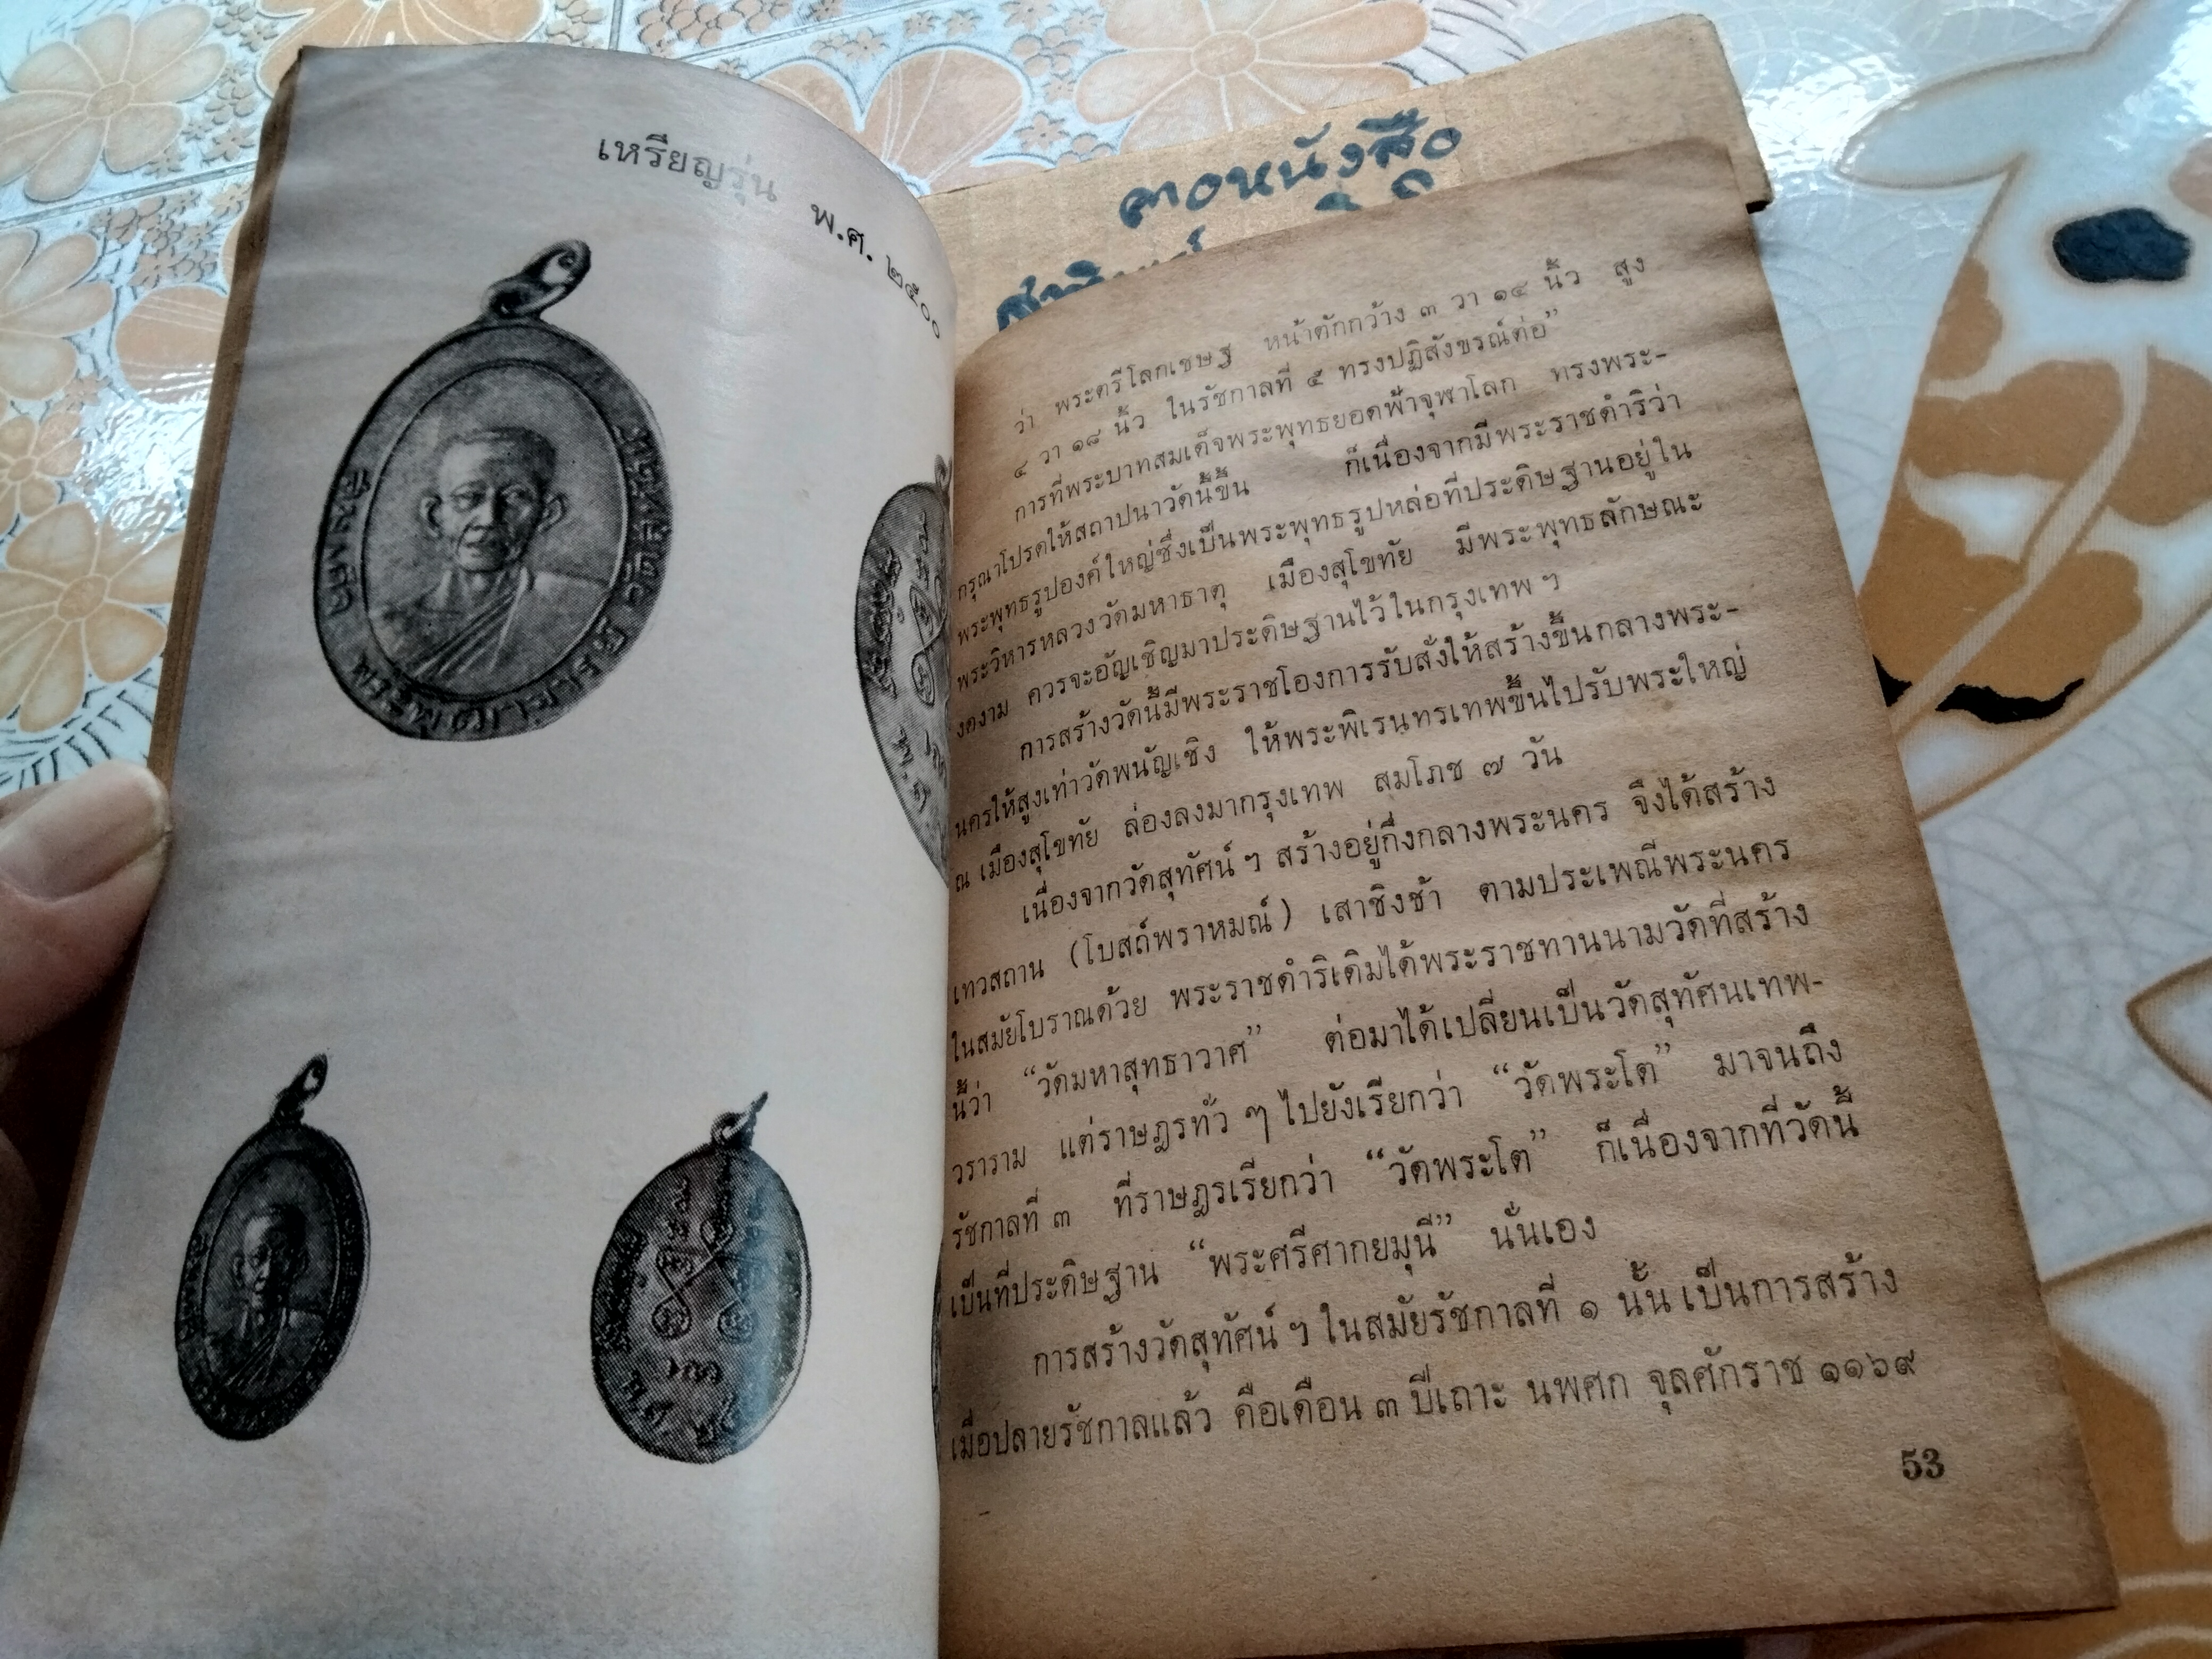 เหรียญรุ่น พ.ศ. ๒๕๐๐
ตอหนังสือ
ว่า พระตรีโลกเชษฐ หน้าตักกว้าง ๓ วา ๑๔ นิ้ว สูง
๔ วา ๑๘ นิ้ว ในรัชกาลที่ ๕ ทรงปฏิสังขรณ์ต่อ”
การที่พระบาทสมเด็จพระพุทธยอดฟ้าจุฬาโลก ทรงพระ-
กรุณาโปรดให้สถาปนาวัดนี้ขึ้น ก็เนื่องจากมีพระราชดำริว่า
พระพุทธรูปองค์ใหญ่ซึ่งเป็นพระพุทธรูปหล่อที่ประดิษฐานอยู่ใน
พระวิหารหลวงวัดมหาธาตุ เมืองสุโขทัย มีพระพุทธลักษณะ
งดงาม ควรจะอัญเชิญมาประดิษฐานไว้ในกรุงเทพ ฯ
การสร้างวัดนี้มีพระราชโองการรับสั่งให้สร้างขึ้นกลางพระ-
นครให้สูงเท่าวัดพนัญเชิง ให้พระพิเรนทรเทพขึ้นไปรับพระใหญ่
ณ เมืองสุโขทัย ล่องลงมากรุงเทพ สมโภช ๗ วัน
เนื่องจากวัดสุทัศน์ ฯ สร้างอยู่กึ่งกลางพระนคร จึงได้สร้าง
เทวสถาน (โบสถ์พราหมณ์) เสาชิงช้า ตามประเพณีพระนคร
ในสมัยโบราณด้วย พระราชดำริเดิมได้พระราชทานนามวัดที่สร้าง
นี้ว่า “วัดมหาสุทธาวาศ” ต่อมาได้เปลี่ยนเป็นวัดสุทัศนเทพ-
วราราม แต่ราษฎรทั่ว ๆ ไปยังเรียกว่า “วัดพระโต” มาจนถึง
รัชกาลที่ ๓ ที่ราษฎรเรียกว่า “วัดพระโต” ก็เนื่องจากที่วัดนี้
เป็นที่ประดิษฐาน “พระศรีศากยมุนี” นั่นเอง
การสร้างวัดสุทัศน์ ฯ ในสมัยรัชกาลที่ ๑ นั้น เป็นการสร้าง
เมื่อปลายรัชกาลแล้ว คือเดือน ๓ ปีเถาะ นพศก จุลศักราช ๑๑๖๙
53